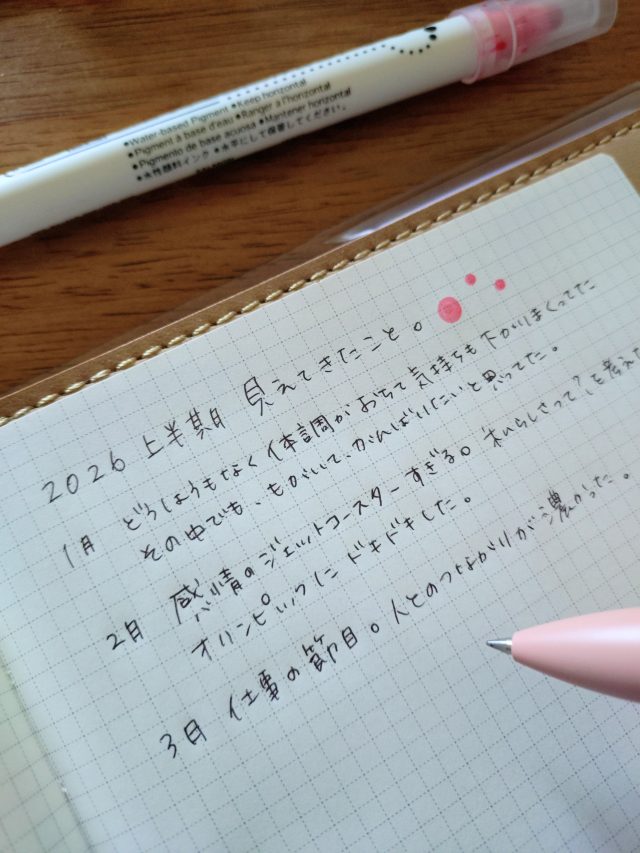 •Water-based Pigment •Keep horizontal
•Pigment à base d'eau •Ranger à l'horizontal
•Pigmento de base acuosa •Mantener horizontal
•水性顔料インク •水平にして保管してください。
2026 上半期 見えてきたこと。
1月 どうしようもなく体調がおちて気持ちも下がりまくってた
その中でも、もがいて、がんばりたいと思ってた。
2月 感情のジェットコースターすぎる。私らしさって?を考えた
オリンピックにドキドキした。
3月 仕事の節目。人とのつながりが濃かった。